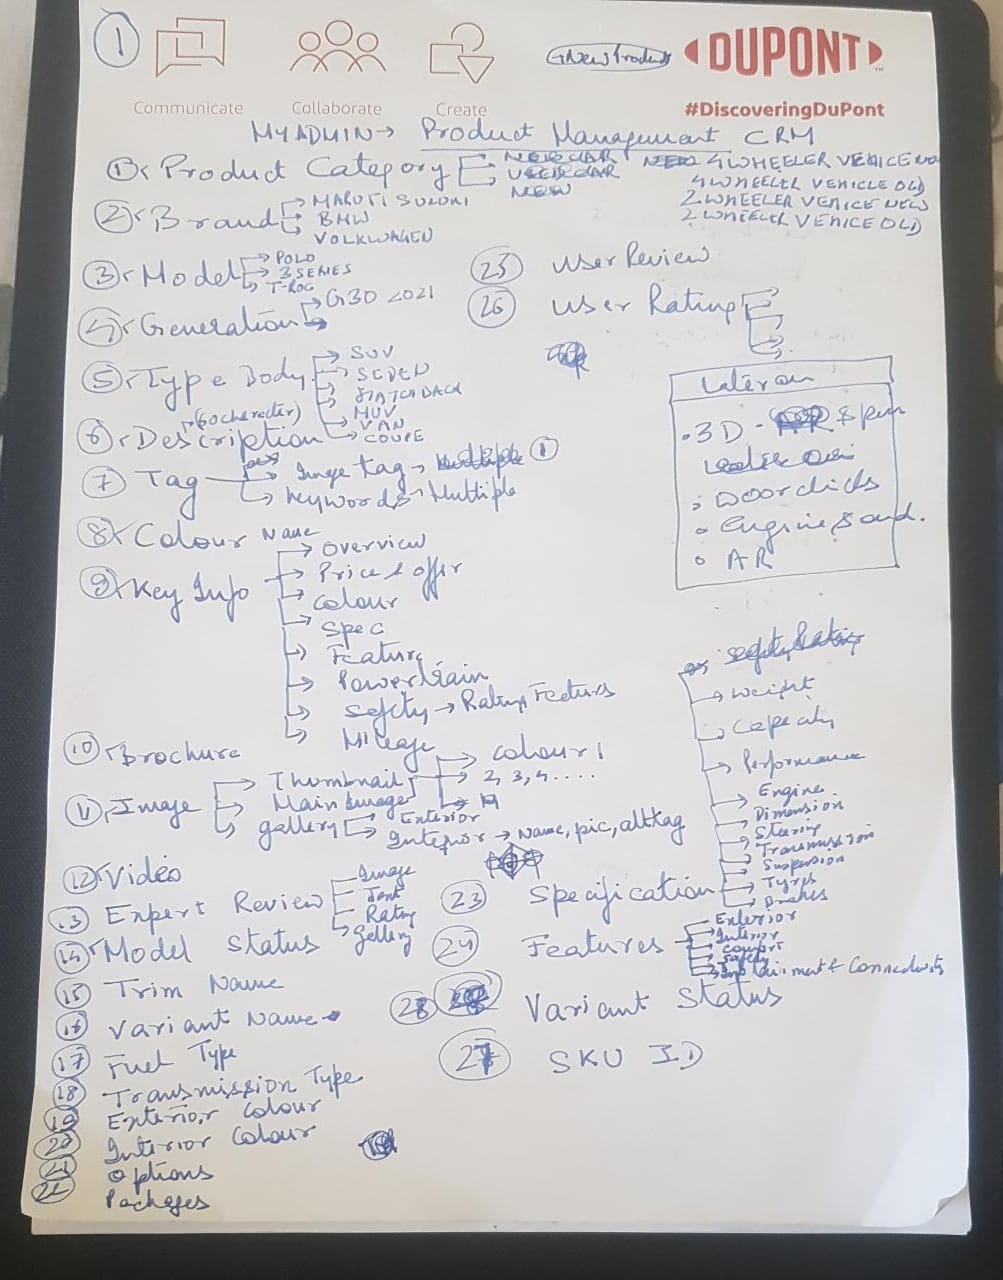 1
Communicate Collaborate Create
New Products
DUPONT
#DiscoveringDuPont
MY ADMIN → Product Management CRM
1 Product Category
NEW CAR
USED CAR
NEW
4 WHEELER VEHICE
4 WHEELER VEHICLE OLD
2 WHEELER VEHICE NEW
2 WHEELER VEHICE OLD
2 Brand
MARUTI SUZUKI
BMW
VOLKWAGEN
3 Model
POLO
3 SERIES
T-ROC
4 Generation
G30 2021
5 Type Body
SUV
SEDEN
HATCHBACK
MUV
VAN
COUPE
6 Description (60 character)
7 Tag
Image tag → 1
Keywords → Multiple
8 Colour Name
9 Key Info
Overview
Price & offer
Colour
Spec
Feature
Powertrain
Safety → Rating, Features
Mileage
10 Brochure
11 Image
Thumbnail
Main Image
Colour 1
2, 3, 4 ....
gallery
Exterior
Interior → Name, pic, alt tag
12 Video
13 Expert Review
Image
Text
Rating
gallery
14 Model Status
15 Trim Name
16 Variant Name
17 Fuel Type
18 Transmission Type
19 Exterior Colour
20 Interior Colour
21 Options
22 Packages
25 User Review
26 User Rating
Later on
• 3D - Spin
• Door clicks
• Engine Sound.
• AR
Safety Rating
Weight
Capacity
Performance
Engine
Dimension
Steering
Transmission
Suspension
Tyres
Brakes
23 Specification
24 Features
Exterior
Interior
Comfort
Safety
Infotainment & Connectivity
28 Variant Status
27 SKU ID